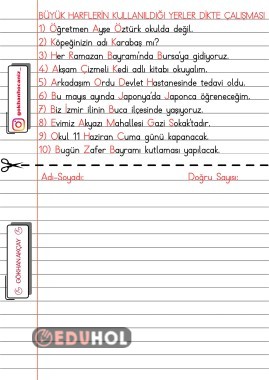 BÜYÜK HARFLERİN KULLANILDIĞI YERLER DİKTE ÇALIŞMASI
1) Öğretmen Ayşe Öztürk okulda değil.
2) Köpeğinizin adı Karabaş mı?
3) Her Ramazan Bayramı'nda Bursa'ya gidiyoruz.
4) Akşam Çizmeli Kedi adlı kitabı okuyalım.
5) Arkadaşım Ordu Devlet Hastanesinde tedavi oldu.
6) Bu mayıs ayında Japonya'da Japonca öğreneceğim.
7) Biz İzmir ilinin Buca ilçesinde yaşıyoruz.
8) Evimiz Akyazı Mahallesi Gazi Sokak'tadır.
9) Okul 11 Haziran Cuma günü kapanacak.
10) Bugün Zafer Bayramı kutlaması yapılacak.
Adı-Soyadı:
Doğru Sayısı:
GÖKHAN AKÇAY
EDUHOL